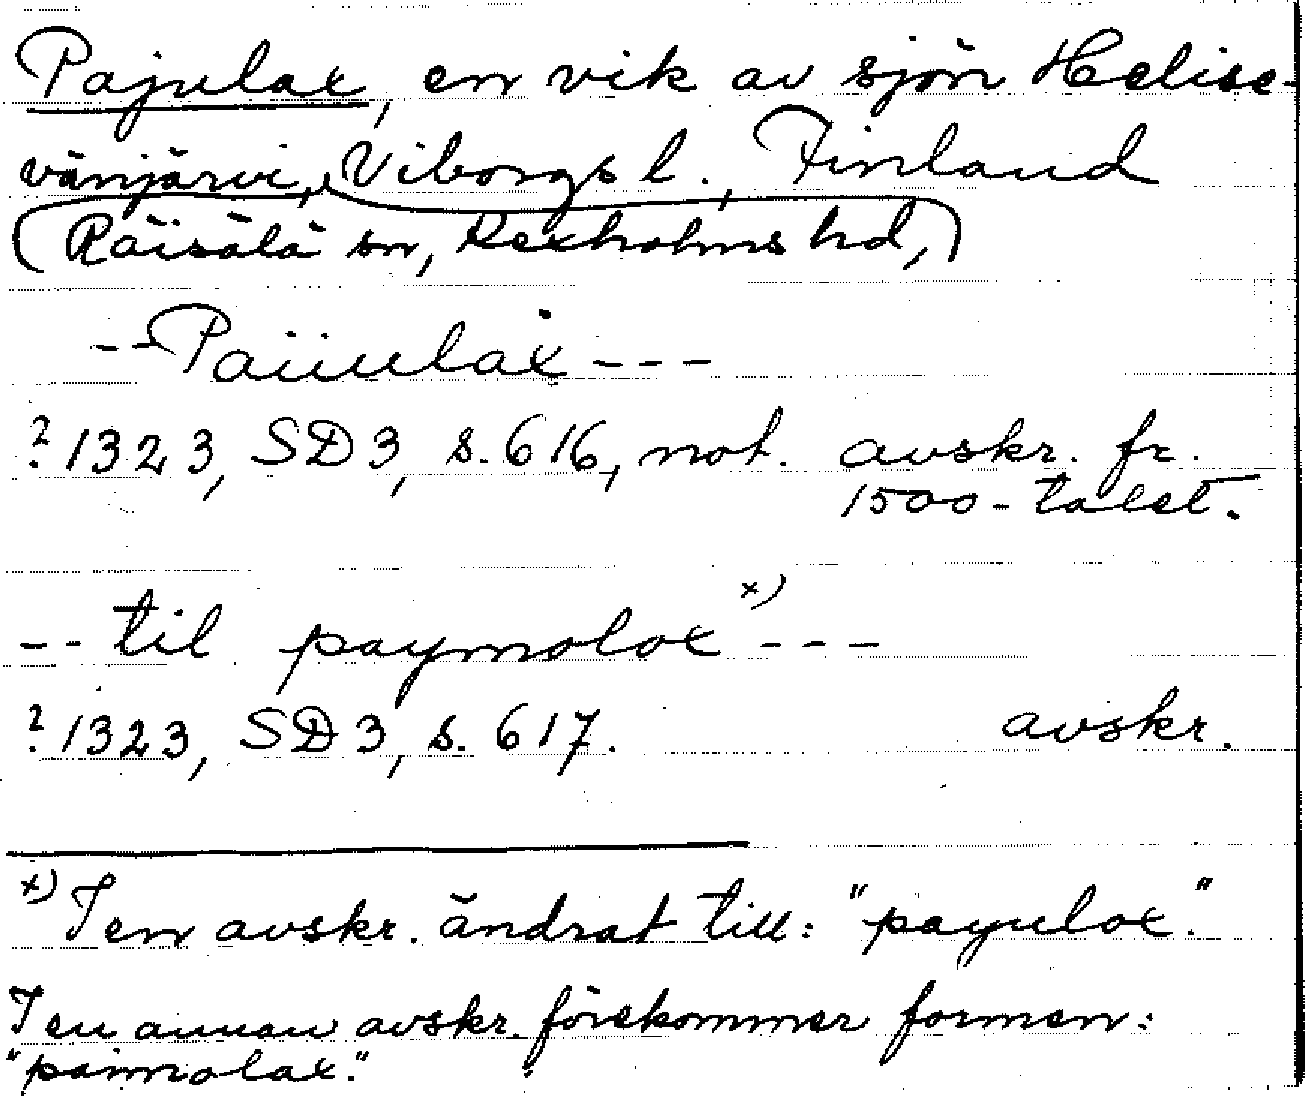 Pajulax, en vik av sjön Helise-
vänjärvi, Viborgs l., Finland
(Räisälä sn, Kexholms hd,)
-- Paiiulax ---
? 1323, SD 3, s. 616, not. avskr. fr.
1500-talet.
-- til paymolox x) ---
? 1323, SD 3, s. 617. avskr.
x) I en avskr. ändrat till: "payulox."
I en annan avskr. förekommer formen:
"paimolax."